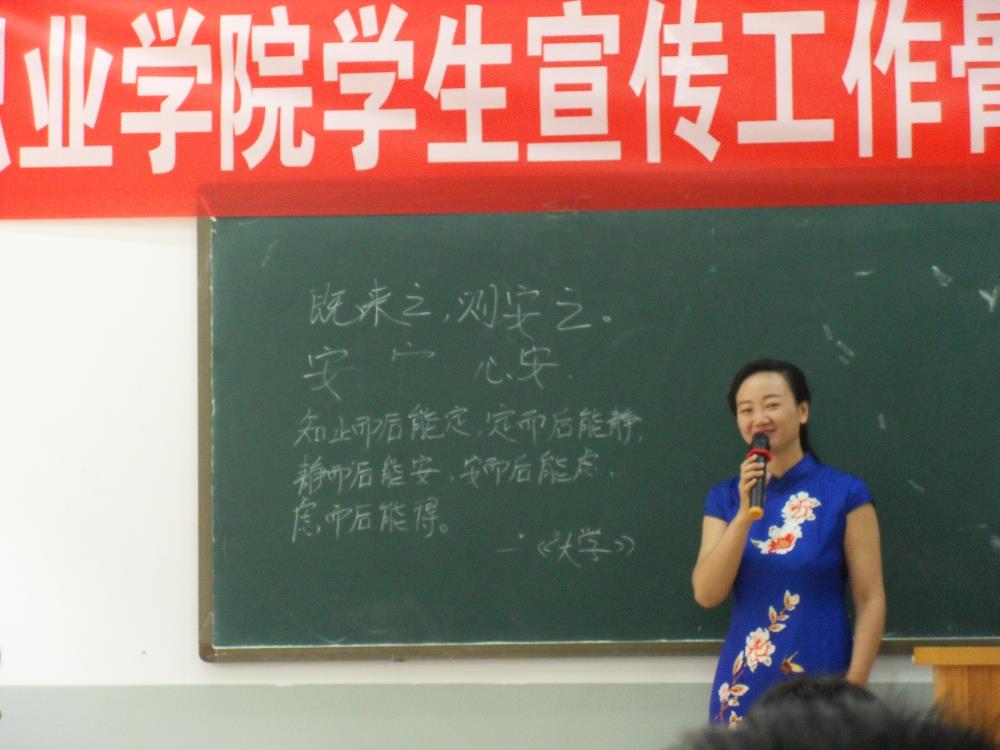 业学院学生宣传工作骨
既来之,则安之。
安 宁 心安.
知止而后能定,定而后能静,
静而后能安,安而后能虑,
虑而后能得。
—《大学》